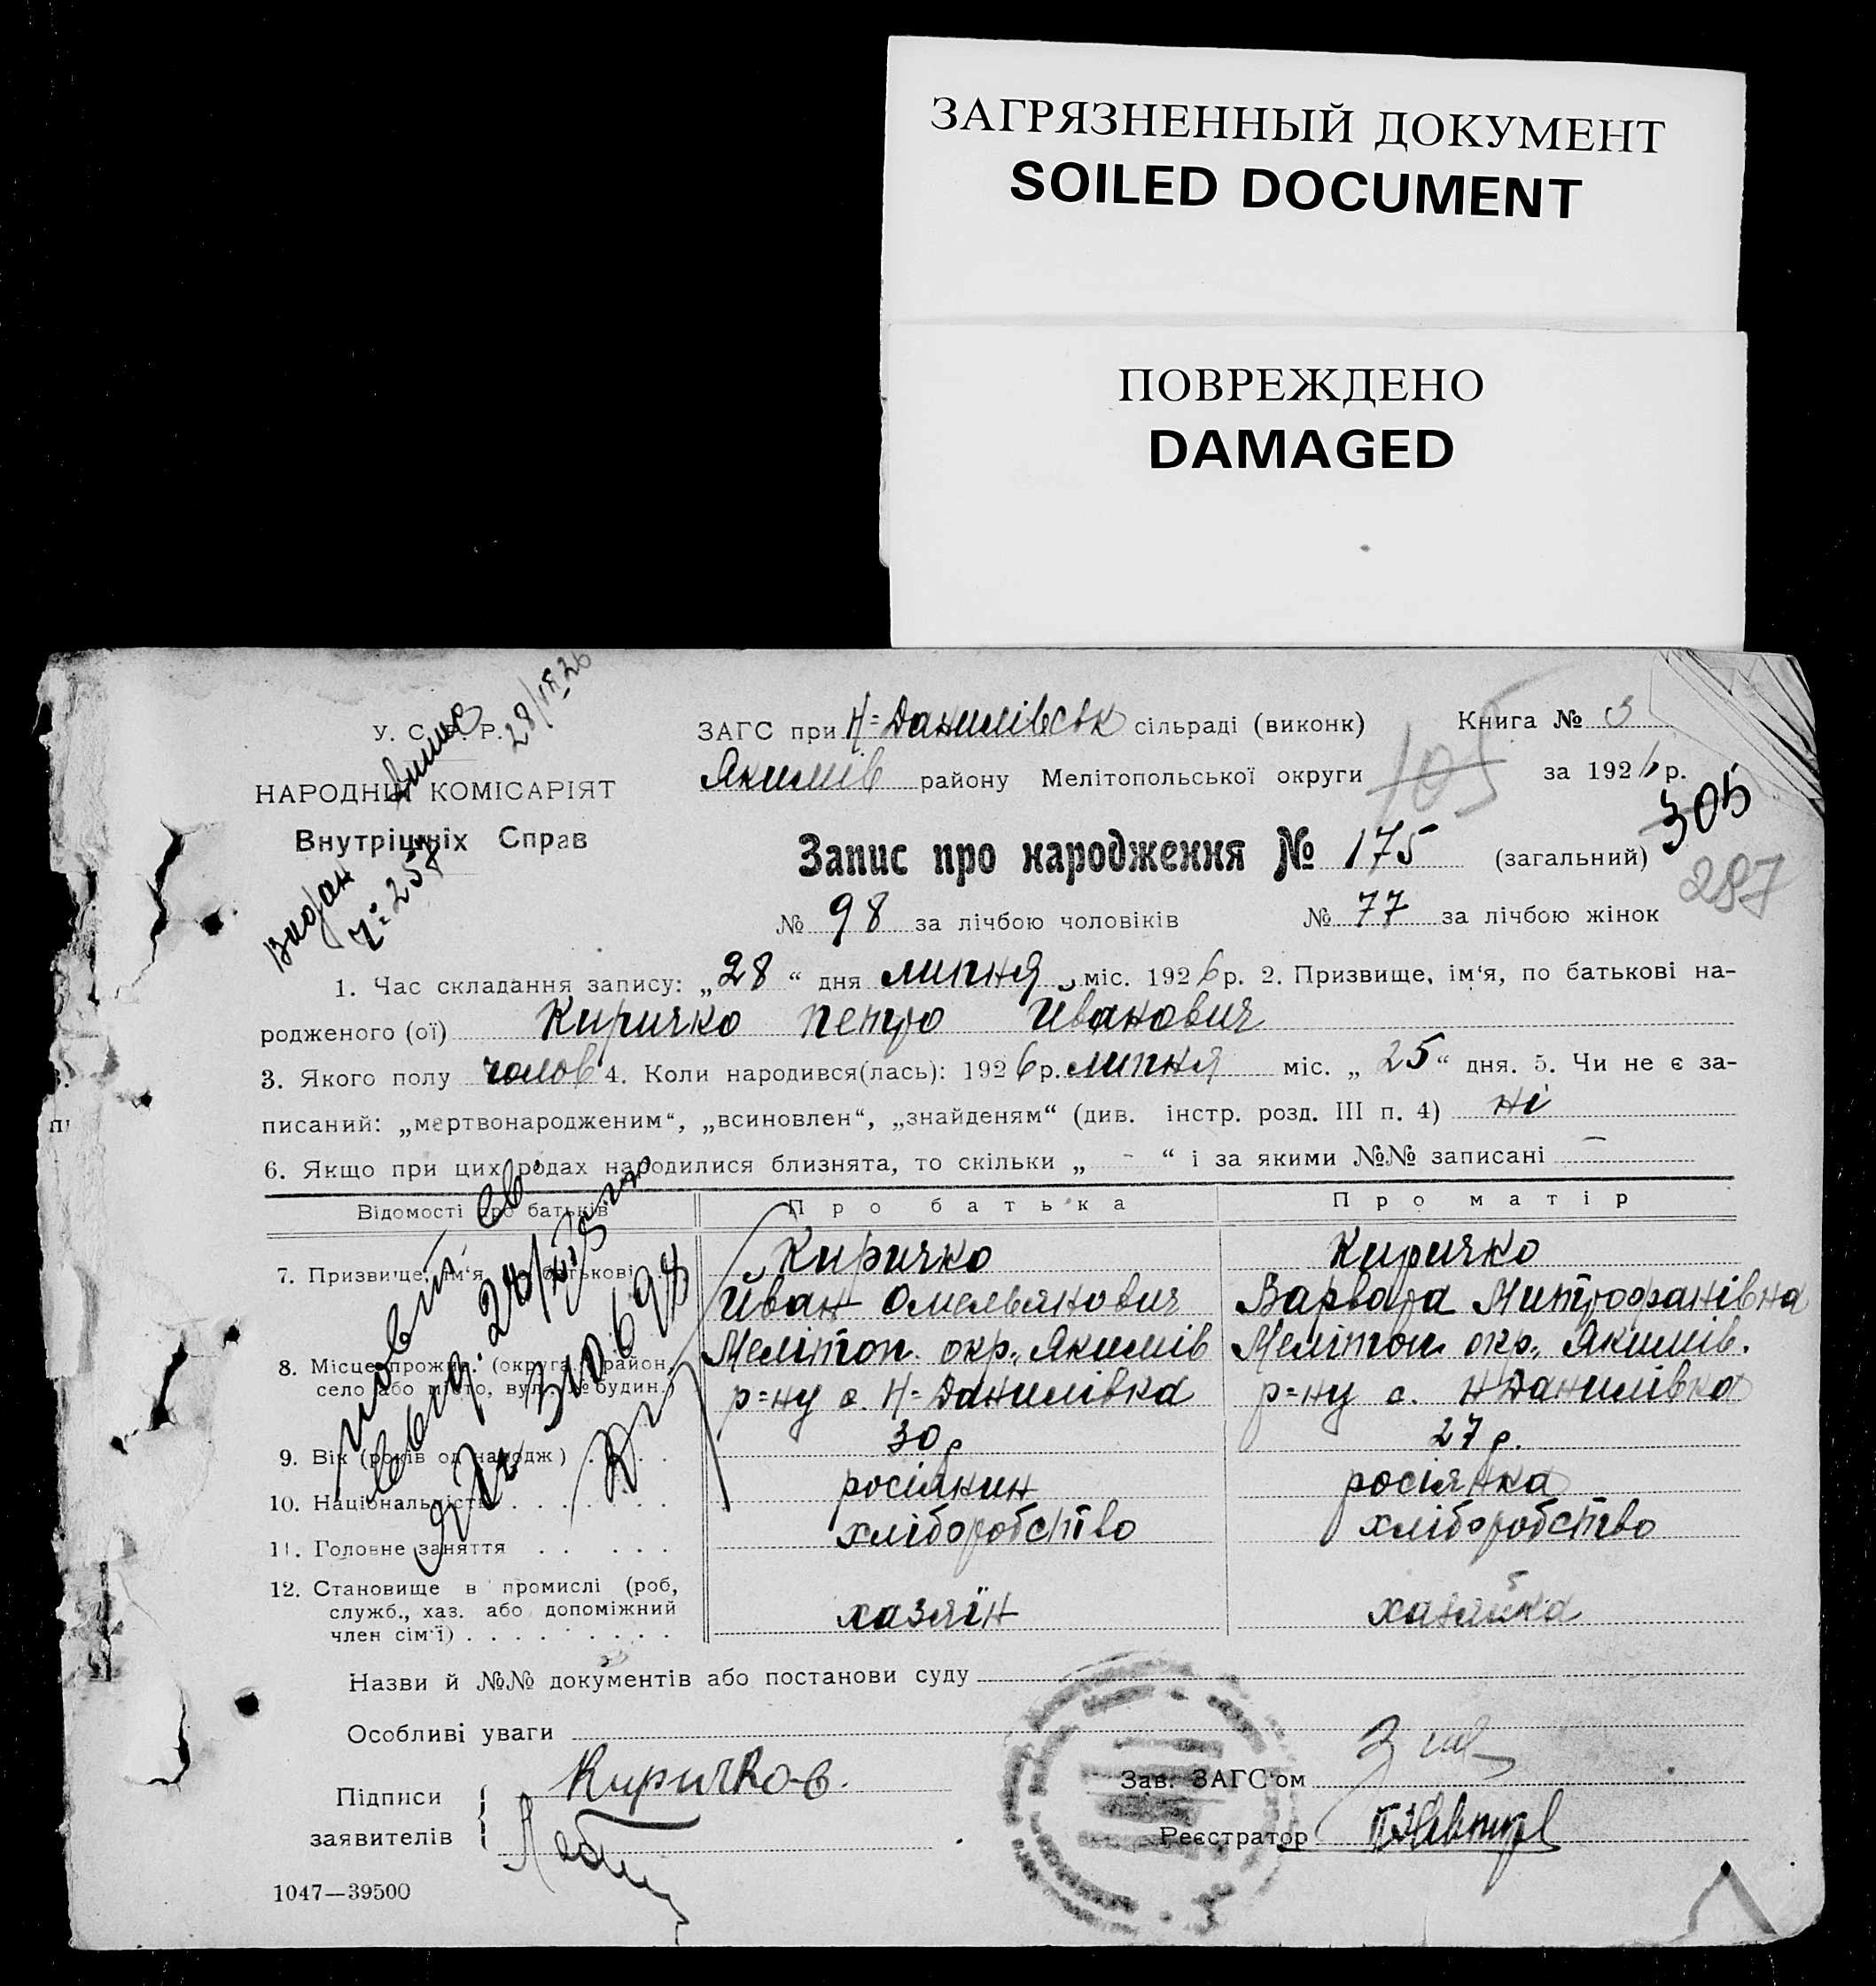 ЗАГРЯЗНЕННЫЙ ДОКУМЕНТ
SOILED DOCUMENT
ПОВРЕЖДЕНО
DAMAGED
28/
У. С. Р. Р.
ЗАГС при Н-Данилівськ сільраді (виконк) Книга № 3
НАРОДНІЙ КОМІСАРІЯТ
Якимів району Мелітопольської округи 105 за 1926 р.
305
Внутрішніх Справ
Запис про народження № 175 (загальний)
287
Видан
258
№ 98 за лічбою чоловіків № 77 за лічбою жінок
1. Час складання запису: „28“ дня липня міс. 1926 р. 2. Призвище, ім‘я, по батькові на-
родженого (ої) Киричко Петро Иванович
3. Якого полу чолов 4. Коли народився(лась): 1926 р. липня міс. „25“ дня. 5. Чи не є за-
писаний: „мертвонародженим“, „всиновлен“, „знайденям“ (див. інстр. розд. III п. 4) ні
6. Якщо при цих родах народилися близнята, то скільки „ - “ і за якими №№ записані —
Відомості про батьків Про батька Про матір
7. Призвище, ім‘я, батькові Киричко Киричко
Иван Омельянович Варвара Митрофанівна
8. Місце прожив. (округа, район, Мелітоп. окр., Якимів Мелітоп. окр., Якимів.
село або місто, вул. № будин.) р=ну с. Н=Данилівка р=ну с. Н Данилівка
9. Вік (років од народж) 30 р 27 р.
10. Національність росіянин росіянка
11. Головне заняття хліборобство хліборобство
12. Становище в промислі (роб,
служб., хаз. або допоміжний хазяїн хазяйка
член сім‘ї)
Назви й №№ документів або постанови суду
Особливі уваги
Підписи Киричков.
заявителів
Зав. ЗАГС‘ом
Реєстратор
1047—39500